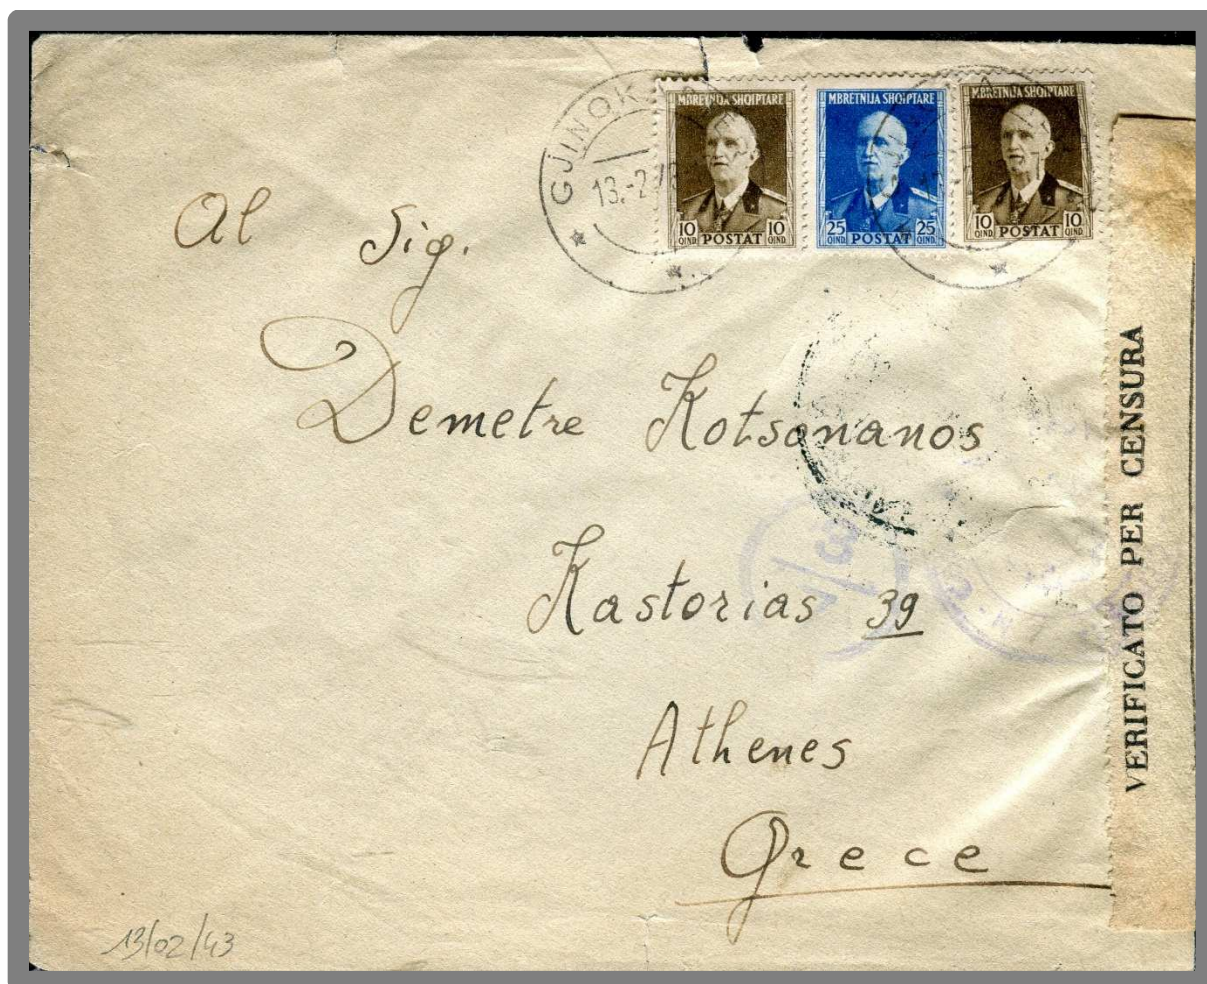 GJINOK
13.-2
MBRETNIJA SHQIPTARE
10 QIND. POSTAT 10 QIND.
MBRETNIJA SHQIPTARE
25 QIND. POSTAT 25 QIND.
MBRETNIJA SHQIPTARE
10 QIND. POSTAT 10 QIND.
Al Sig.
Demetre Kotsonanos
Kastorias 39
Athenes
Grece
VERIFICATO PER CENSURA
13/02/43